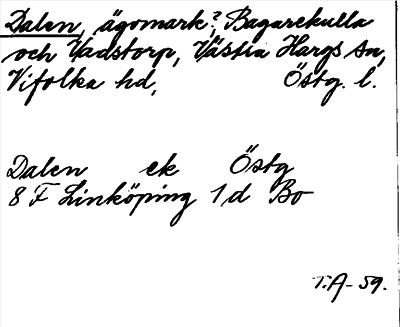 Dalen, ägomark?, Bagarekulla
och Vadstorp, Västra Hargs sn,
Vifolka hd, Östg. l.
Dalen ek Östg
8 F Linköping 1 d Bo
T.A-59.